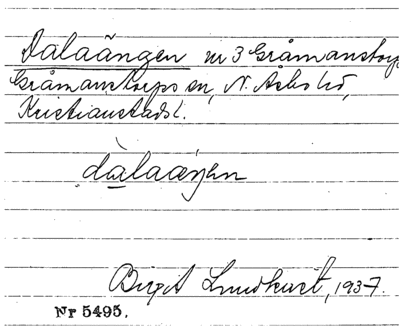 Dalaängen nr 3 Gråmanstorp
Gråmanstorps sn, N. Åsbo hd,
Kristianstads l.
dàlaäŋen
Birgit Lundkvist, 1937.
Nr 5495.